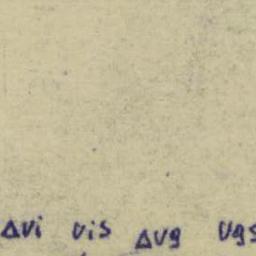 Δvi vis Δvg vgs